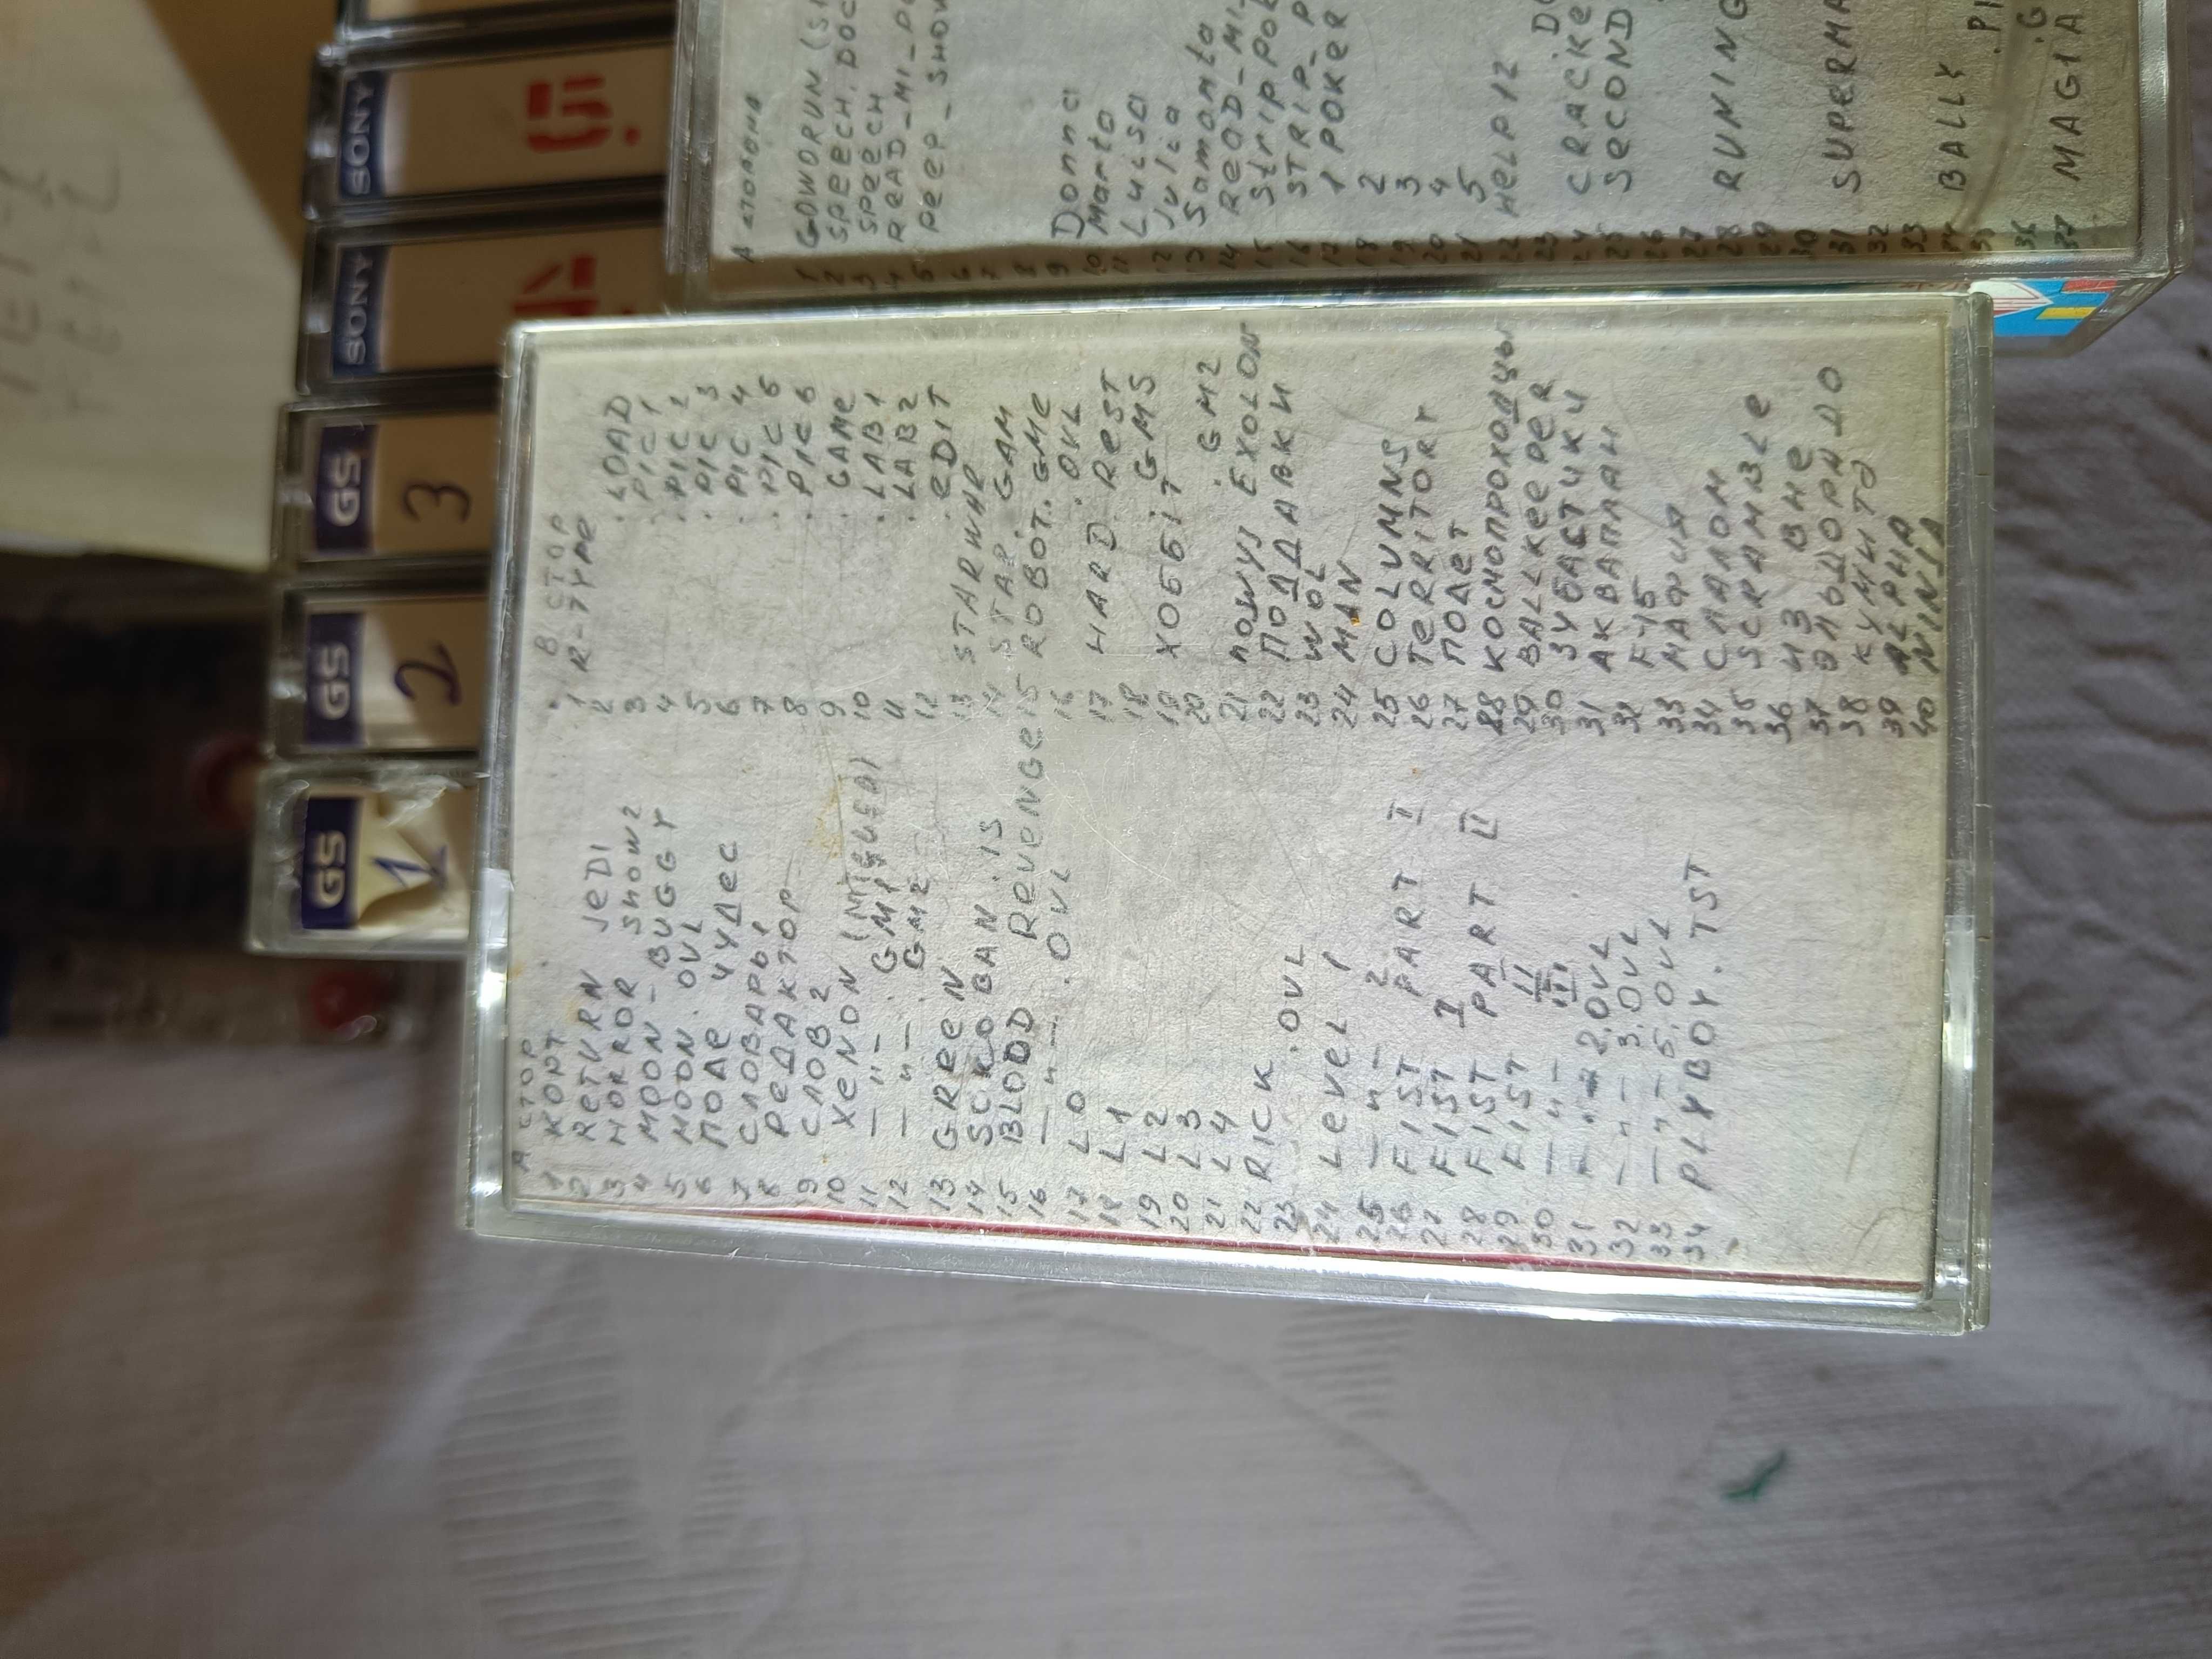 А СТОР
1 КОНТ
2 RETURN JEDI
3 HORROR SHOW2
4 MOON-BUGGY
5 MOON.OVL
6 ПОЛЕ ЧУДЕС
7 СЛОВАРЬ!
8 РЕДАКТОР
9 СЛОВ2
10 XENON
11 —"— .GM1
12 —"— .GM2
13 GREEN
14 SOKOBAN.IS
15 BLOOD REVENGE
16 —"— .OVL
17 L0
18 L1
19 L2
20 L3
21 L4
22 RICK
23 .OVL
24 LEVEL 1
25 —"— 2
26 FIST PART I
27 FIST I
28 FIST PART II
29 FIST II
30 —"— III
31 2.OVL
32 —"— 3.OVL
33 —"— 5.OVL
34 PLYBOY.TST
В СТОР
1 R-TYPE
2 .LOAD
3 .PIC1
4 .PIC 2
5 .PIC 3
6 .PIC 4
7 .PIC 5
8 .PIC 6
9 .GAME
10 .LAB1
11 .LAB2
12 .EDIT
13 STARWAR
14 STAR.GAM
15 ROBOT.GME
16 .OVL
17 HARD.REST
18
19 ХОББІТ GMS
20 .GM2
21 EXOLON
22 ПОДДАВКИ
23 WOL
24 MAN
25 COLUMNS
26 TERRITORY
27 ПОЛЕТ
28 КОСМОПРОХОДЦЫ
29 BALLKEEPER
30 ЗУБАСТИКИ
31 АКВАПЛАН
32 F-15
33 МАФИЯ
34 СЛАЛОМ
35 SCRAMBLE
36 ИЗ ВНЕ
37 ЭЛЬДОРАДО
38
39 ALPHA
40 NINJA
GS 1
GS 2
GS 3
SONY
SONY 5
А СТОРОНА
1 GOWORUN
2 SPEECH.DOC
3 SPEECH
4
5 PEEP_SHOW
6
7
8
9 Donna
10 Marta
11 Luisa
12 Julia
13 Samanta
14
15
16
17 1 POKER
18 2
19 3
20 4
21 5
22 HELP12
23
24
25 SECOND
26
27
28 RUNING
29
30
31
32
33
34 BALLY
35
36
37 MAGIA